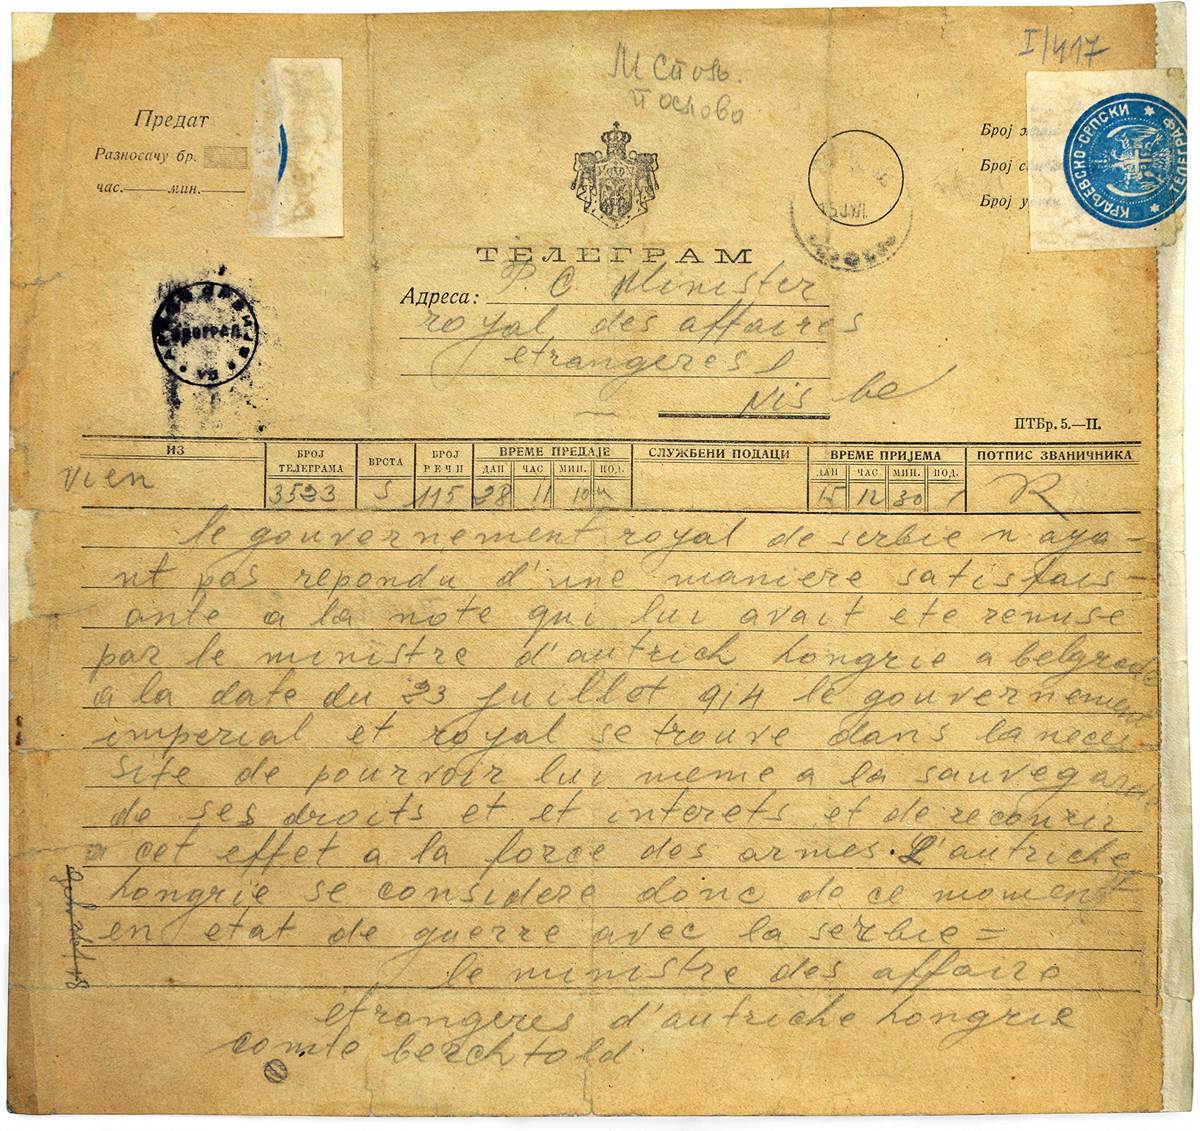 I/417
М Спољ.
послова
Предат
Разносачу бр.
час. мин.
Број
Број
Број
КРАЉЕВСКО-СРПСКИ ТЕЛЕГРАФ
ТЕЛЕГРАМ
Адреса: P. C. Minister
royal des affaires
etrangeres
Nis be
ПТБр. 5.—II.
ИЗ
БРОЈ ТЕЛЕГРАМА
ВРСТА
БРОЈ РЕЧИ
ВРЕМЕ ПРЕДАЈЕ
СЛУЖБЕНИ ПОДАЦИ
ВРЕМЕ ПРИЈЕМА
ПОТПИС ЗВАНИЧНИКА
ДАН ЧАС МИН. ПОД.
ДАН ЧАС МИН. ПОД.
vien 3523 S 115 28 11 10 15 12 30 R
le gouvernement royal de serbie n aya-
nt pas repondu d'une maniere satisfais-
ante a la note qui lui avait ete remise
par le ministre d'autrich hongrie a belgrade
a la date du 23 juillot 914 le gouvernement
imperial et royal se trouve dans la neces
site de pourvoir lui meme a la sauvegar
de ses droits et et interets et de recourir
a cet effet a la force des armes. L'autriche
hongrie se considere donc de ce moment
en etat de guerre avec la serbie =
le ministre des affaire
etrangeres d'autriche hongrie
comte berchtold